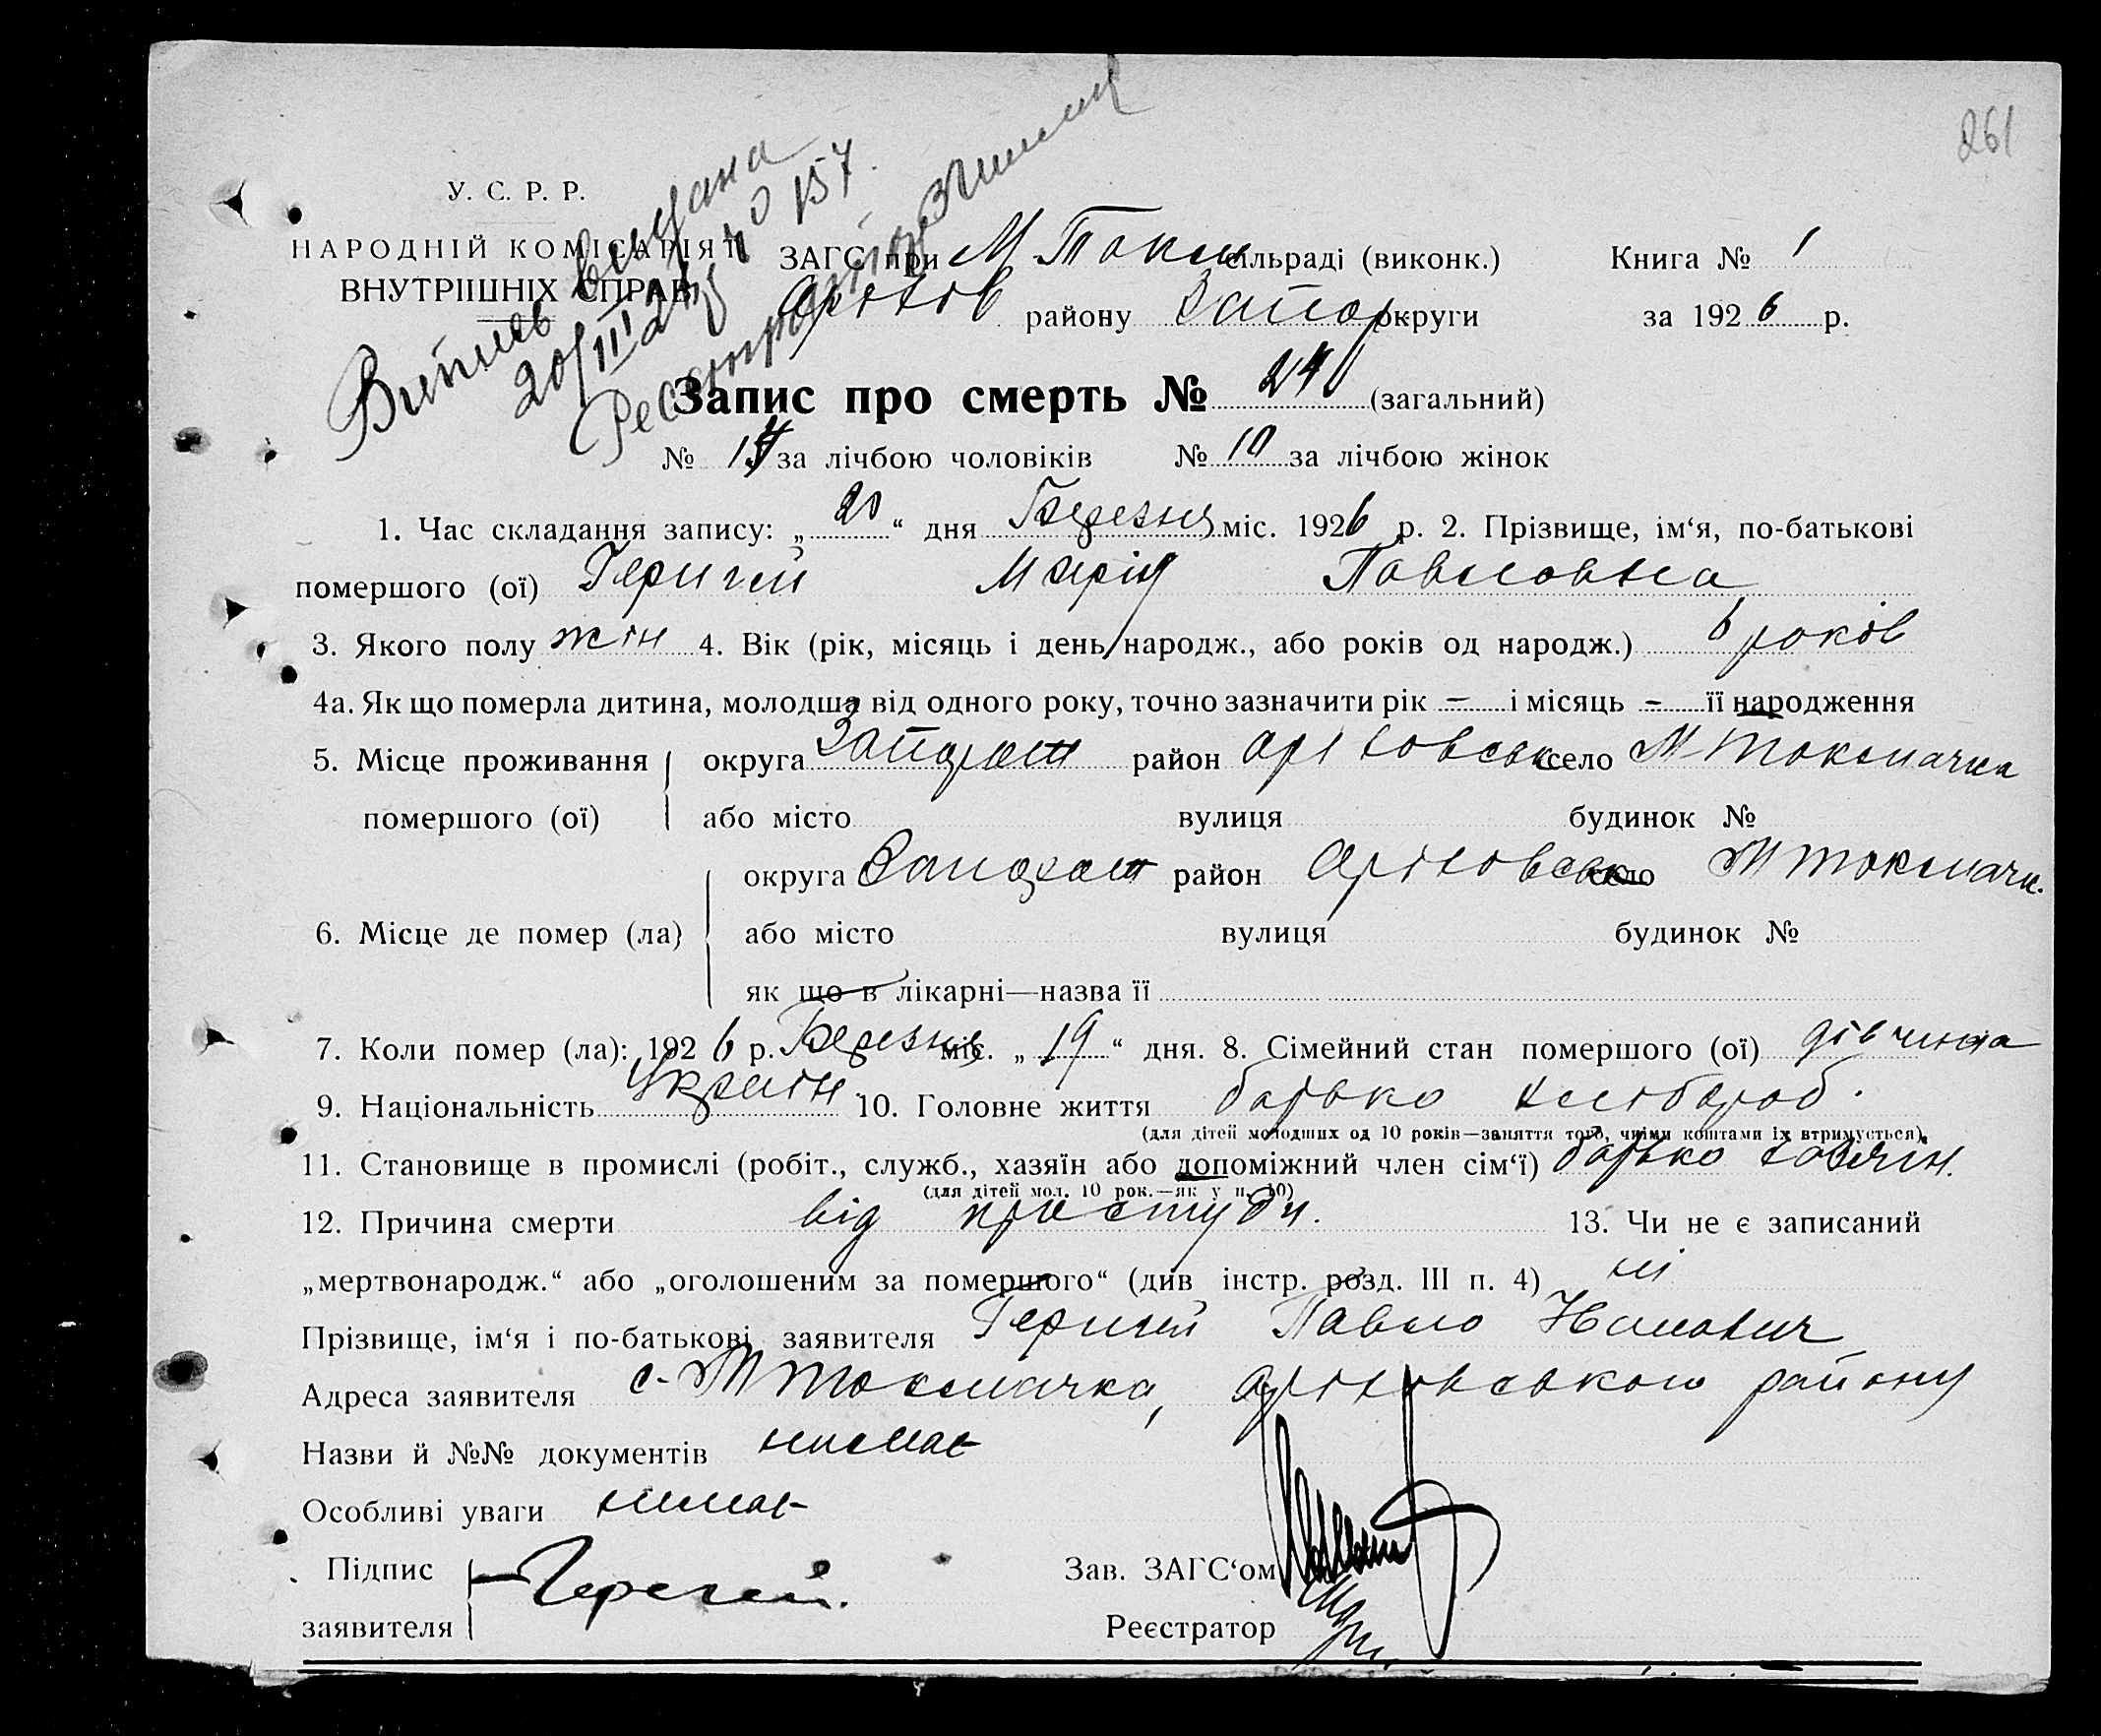 261
У. С. Р. Р.
НАРОДНІЙ КОМІСАРІЯТ
ВНУТРІШНІХ СПРАВ
Витись видана
20/III 26 157.
ЗАГС при М Токм сільраді (виконк.) Книга № 1
Оріхів району Запор округи за 1926 р.
Запис про смерть № 24 (загальний)
№ 14 за лічбою чоловіків № 10 за лічбою жінок
1. Час складання запису: „20“ дня Березня міс. 1926 р. 2. Прізвище, ім‘я, по-батькові
помершого (ої) Геригей Марія Павловна
3. Якого полу жін 4. Вік (рік, місяць і день народж., або років од народж.) 6 років
4а. Як що померла дитина, молодша від одного року, точно зазначити рік – і місяць – її народження
5. Місце проживання округа Запоріж район Оріховськ село М Токмачка
помершого (ої) або місто вулиця будинок №
округа Запоріж район Оріховськ село М Токмачк.
6. Місце де помер (ла) або місто вулиця будинок №
як що в лікарні—назва її
7. Коли помер (ла): 1926 р. Березня міс. „19“ дня. 8. Сімейний стан помершого (ої) дівчина
9. Національність Україн. 10. Головне життя батько хлібороб.
(для дітей молодших од 10 років—заняття того, чиїми коштами їх втримується).
11. Становище в промислі (робіт., служб., хазяїн або допоміжний член сім‘ї) батько хазяїн.
(для дітей мол. 10 рок.—як у п. 10)
12. Причина смерти від простуди. 13. Чи не є записаний
„мертвонародж.“ або „оголошеним за помершого“ (див інстр. розд. III п. 4) ні
Прізвище, ім‘я і по-батькові заявителя Геригей Павло
Адреса заявителя с. М Токмачка, Оріховського району
Назви й №№ документів нимає
Особливі уваги нимає
Підпис Зав. ЗАГС‘ом
заявителя Герегей. Реєстратор